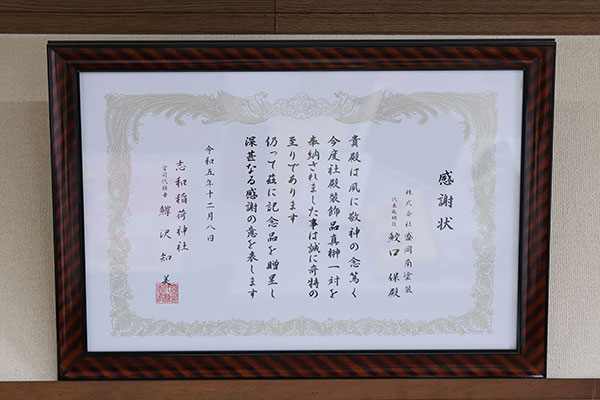 感謝状
株式会社 盛岡南塗装
代表取締役 鮫口 保殿
貴殿は夙に敬神の念篤く
今度社殿装飾品真榊一対を
奉納されました事は誠に奇特の
至りであります
仍って茲に記念品を贈呈し
深甚なる感謝の意を表します
令和五年十二月八日
志和稲荷神社
宮司代務者 鱒沢知美